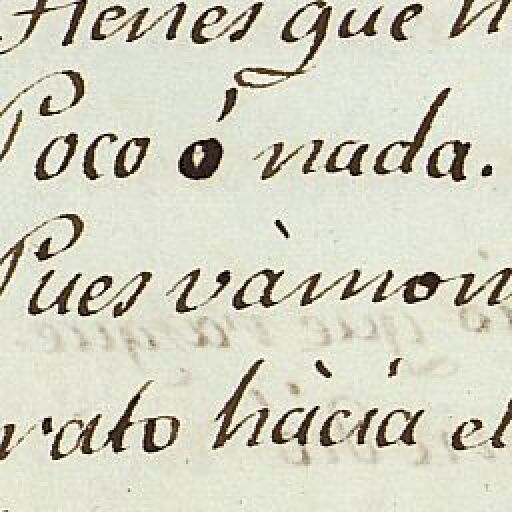 tienes que
Poco ó nada.
Pues vàmon
rato hàcia el